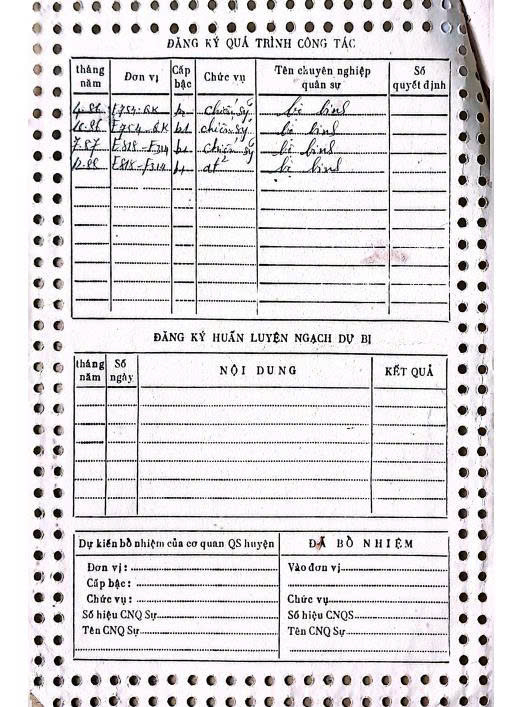 ĐĂNG KÝ QUÁ TRÌNH CÔNG TÁC
tháng năm Đơn vị Cấp bậc Chức vụ Tên chuyên nghiệp quân sự Số quyết định
4.86 E754-QK chiến sỹ bộ binh
10.86 E754-QK b1 chiến sỹ bộ binh
7.87 E818-F314 b1 chiến sỹ bộ binh
E818-F314 at² bộ binh
ĐĂNG KÝ HUẤN LUYỆN NGẠCH DỰ BỊ
tháng năm Số ngày NỘI DUNG KẾT QUẢ
Dự kiến bổ nhiệm của cơ quan QS huyện ĐÃ BỔ NHIỆM
Đơn vị: Vào đơn vị
Cấp bậc:
Chức vụ: Chức vụ
Số hiệu CNQ Sự Số hiệu CNQS
Tên CNQ Sự Tên CNQ Sự